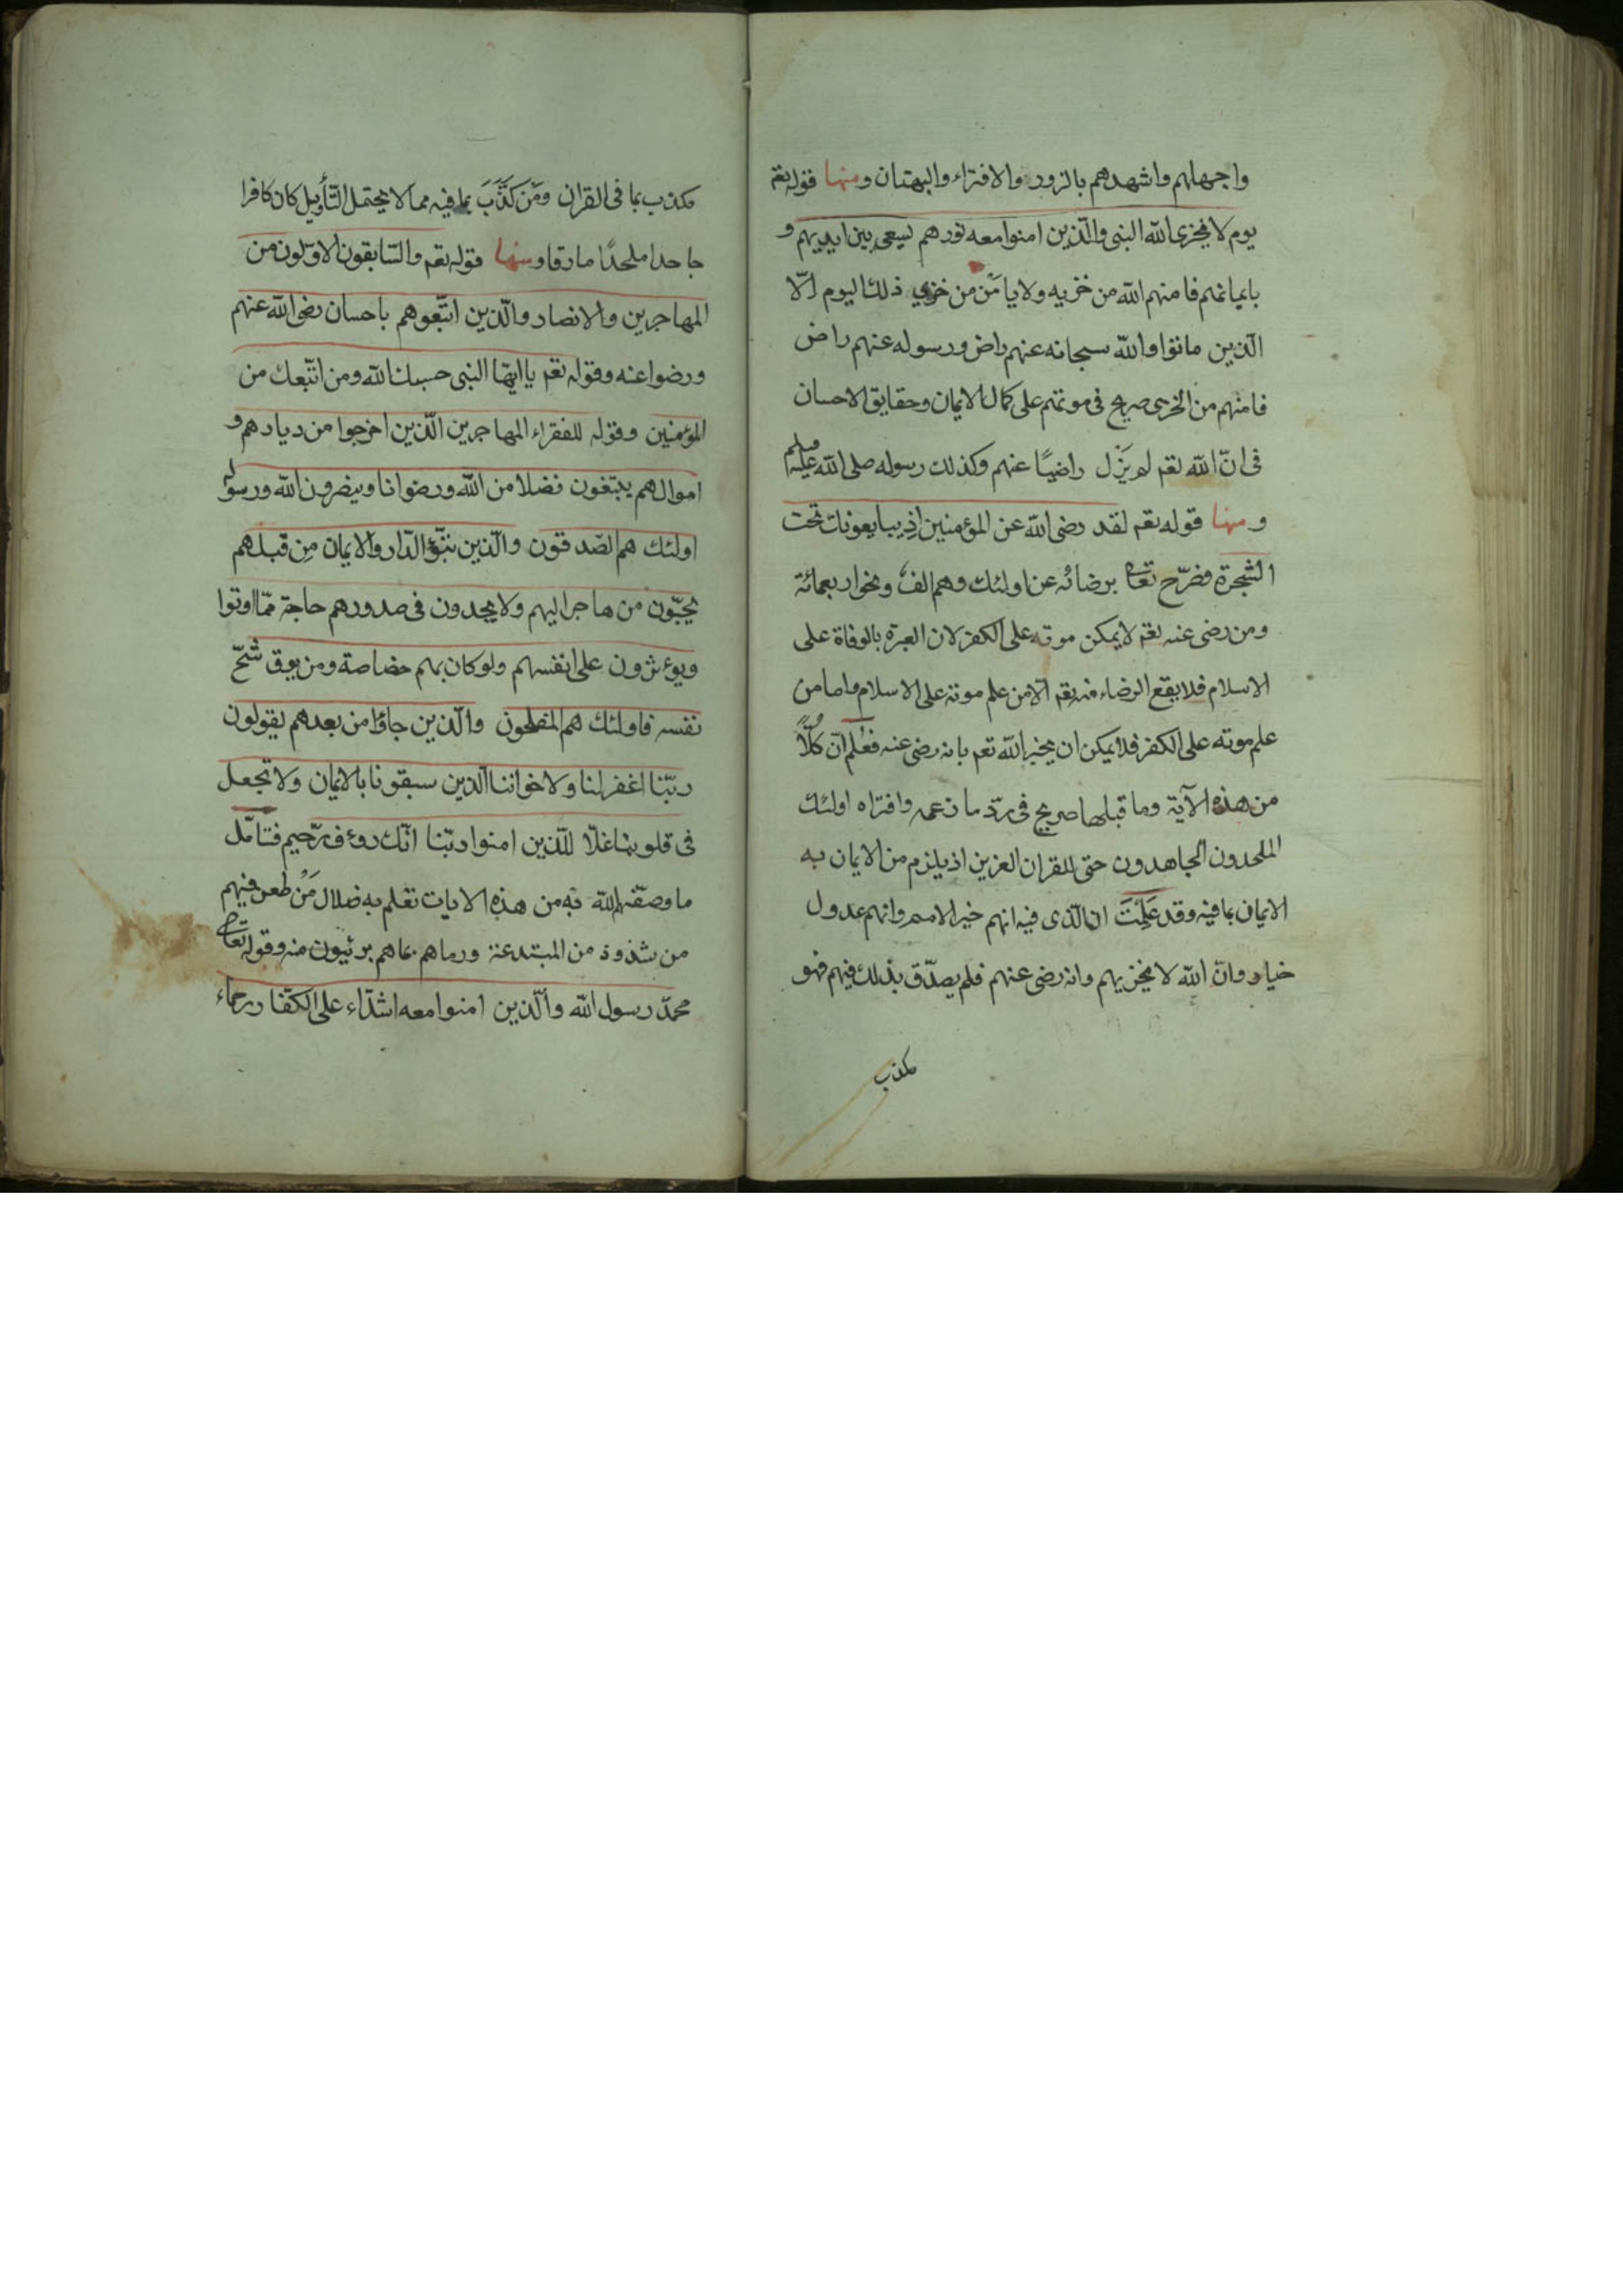 واجهلهم واشهدهم بالزور والافتراء والبهتان ومنها قوله تعم
يوم لا يخزى الله النبى والذين امنوا معه نورهم يسعى بين ايديهم و
بايمانهم فامنهم الله من خزيه ولا يامَن من خزي ذلك اليوم الّا
الذين ماتوا والله سبحانه عنهم راض ورسوله عنهم راض
فامنهم من الخزى صريح فى موتهم على كمال الايمان وحقايق الاحسان
فى انّ الله تعم لم يَزَل راضيًا عنهم وكذلك رسوله صلى الله عليه وسلم
ومنها قوله تعم لقد رضى الله عن المؤمنين اذ يبايعونك تحت
الشجرة فصرّح تعالى برضائه عن اولئك وهم الف ونحو اربعمائة
ومن رضى عنه تعم لا يمكن موته على الكفر لان العبرة بالوفاة على
الاسلام فلا يقع الرضاء منه تعم الّا من علم موته على الاسلام واما من
علم موته على الكفر فلا يمكن ان يخبر الله تعم بانه رضى عنه فعُلم انّ كلًّا
من هذه الآية وما قبلها صريح فى ردّ ما زعمه وافتراه اولئك
الملحدون الجاهدون حتى للقران العزيز اذ يلزم من الايمان به
الايمان بما فيه وقد عَلِمْتَ ان الذى فيه انهم خير الامم وانهم عدول
خيار وانّ الله لا يخزيهم وانه رضى عنهم فلم يصدّق بذلك فيهم فهو
مكذب
مكذب بما فى القران ومَن كَذَّبَ بما فيه مما لا يحتمل التأويل كان كافرا
جاحدا ملحدًا مارقا ومنها قوله تعم والسّابقون الاوّلون من
المهاجرين والانصار والّذين اتّبعوهم باحسان رضى الله عنهم
ورضوا عنه وقوله تعم يا ايهّا النبى حسبك الله ومن اتّبعك من
المؤمنين وقوله للفقراء المهاجرين الّذين اخرجوا من ديارهم و
اموالهم يبتغون فضلا من الله ورضوانا وينصرون الله ورسوله
اولئك هم الصّدقون والّذين تبوّؤ الدّار والايمان مِن قبلهم
يحبّون من هاجر اليهم ولا يجدون فى صدورهم حاجة ممّا اوتوا
ويوءثرون على انفسهم ولو كان بهم خصاصة ومن يوق شحّ
نفسه فاولئك هم المفلحون والّذين جاؤا من بعدهم يقولون
ربّنا اغفر لنا ولاخواننا الّذين سبقونا بالايمان ولا تجعل
فى قلوبنا غلّا للّذين امنوا ربّنا انّك روءف رّحيم فتامّل
ما وصفهم الله به من هذه الايات تعلم به ضلال مَنْ طعن فيهم
من شذوذ من المبتدعة ورماهم بما هم بريئون منه وقوله تعالى
محمّد رسول الله والّذين امنوا معه اشدّاء على الكفّار رحماء